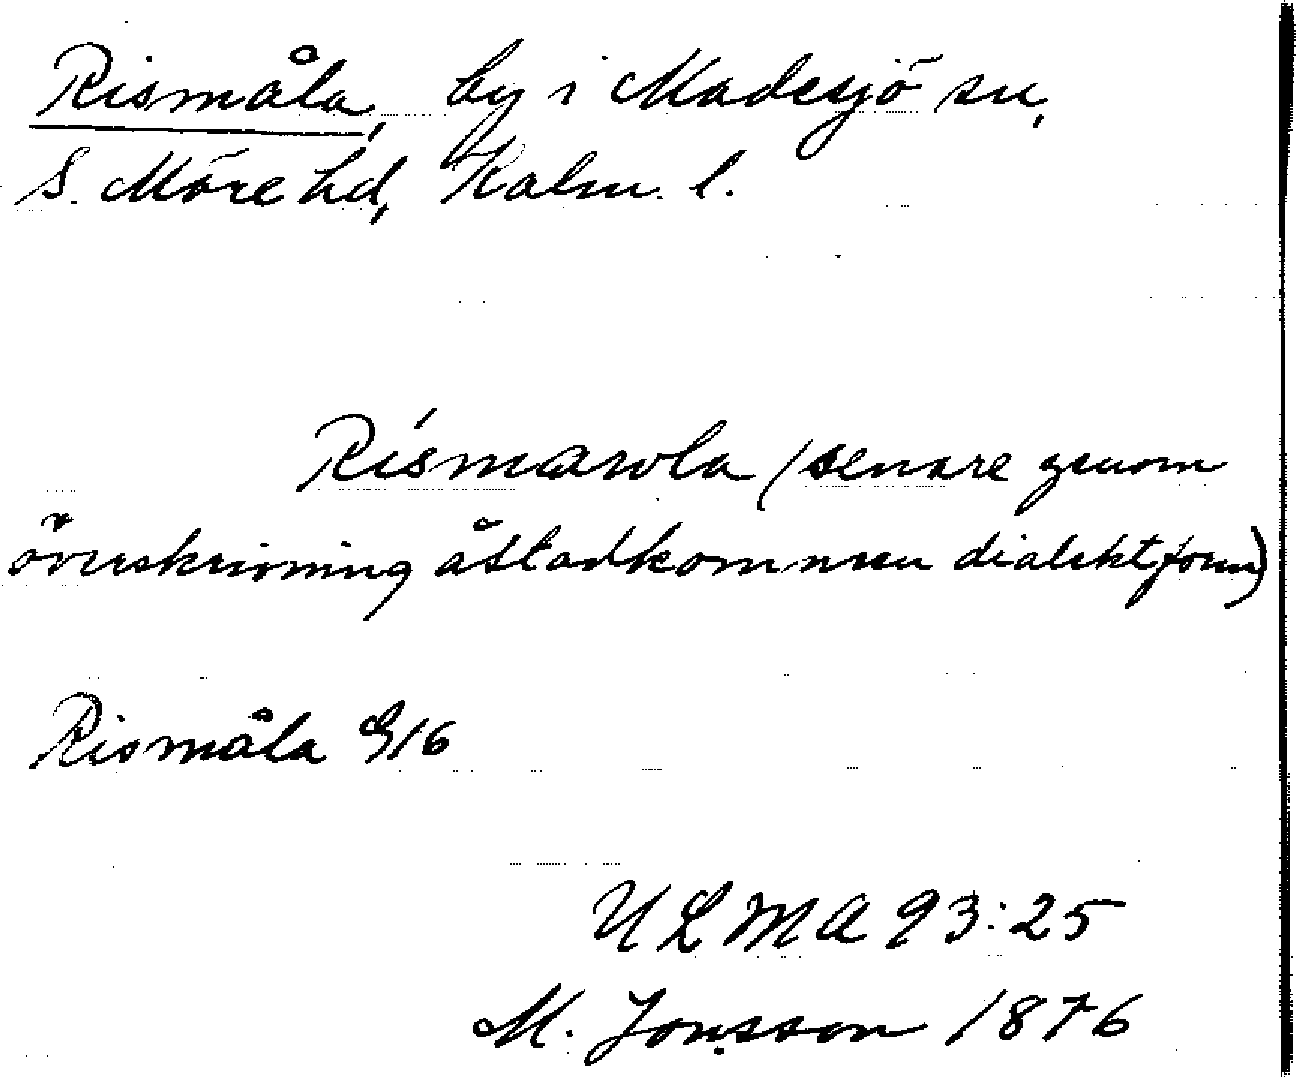 Rismåla, by i Madesjö sn,
S. Möre hd, Kalm. l.
Rísmawla (senare genom
överskrivning åstadkommen dialektform)
Rismåla G16
ULMA 93:25
M. Jonsson 1876